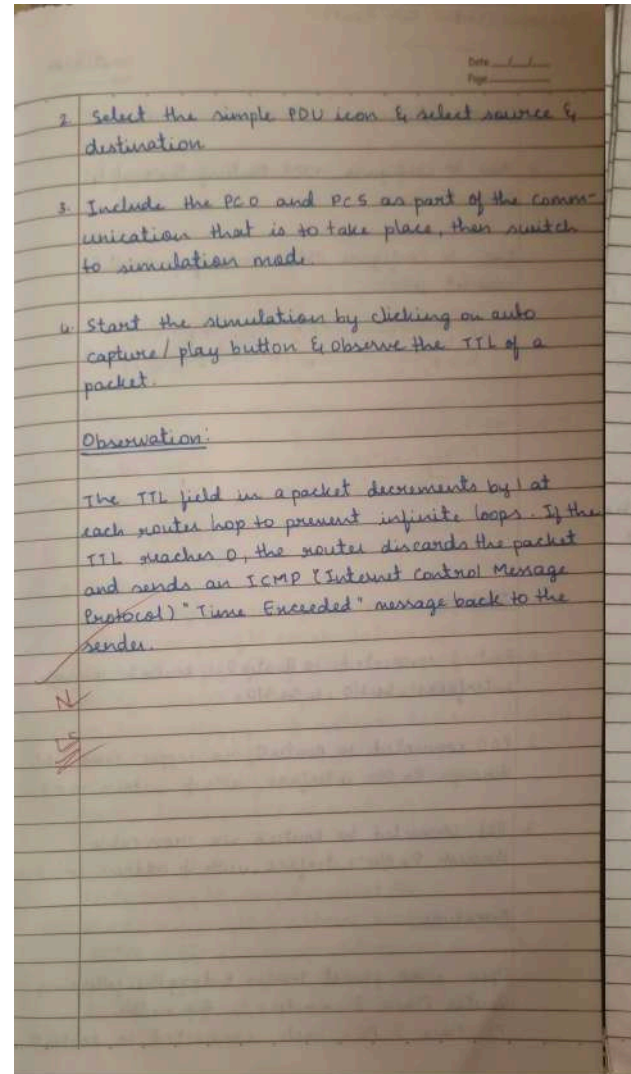 Date __/__/__
Page ______
2. Select the simple PDU icon & select source &
destination
3. Include the PC0 and PC5 as part of the comm-
unication that is to take place, then switch
to simulation mode.
4. Start the simulation by clicking on auto
capture/play button & observe the TTL of a
packet.
Observation:
The TTL field in a packet decrements by 1 at
each router hop to prevent infinite loops. If the
TTL reaches 0, the router discards the packet
and sends an ICMP (Internet Control Message
Protocol) "Time Exceeded" message back to the
sender.